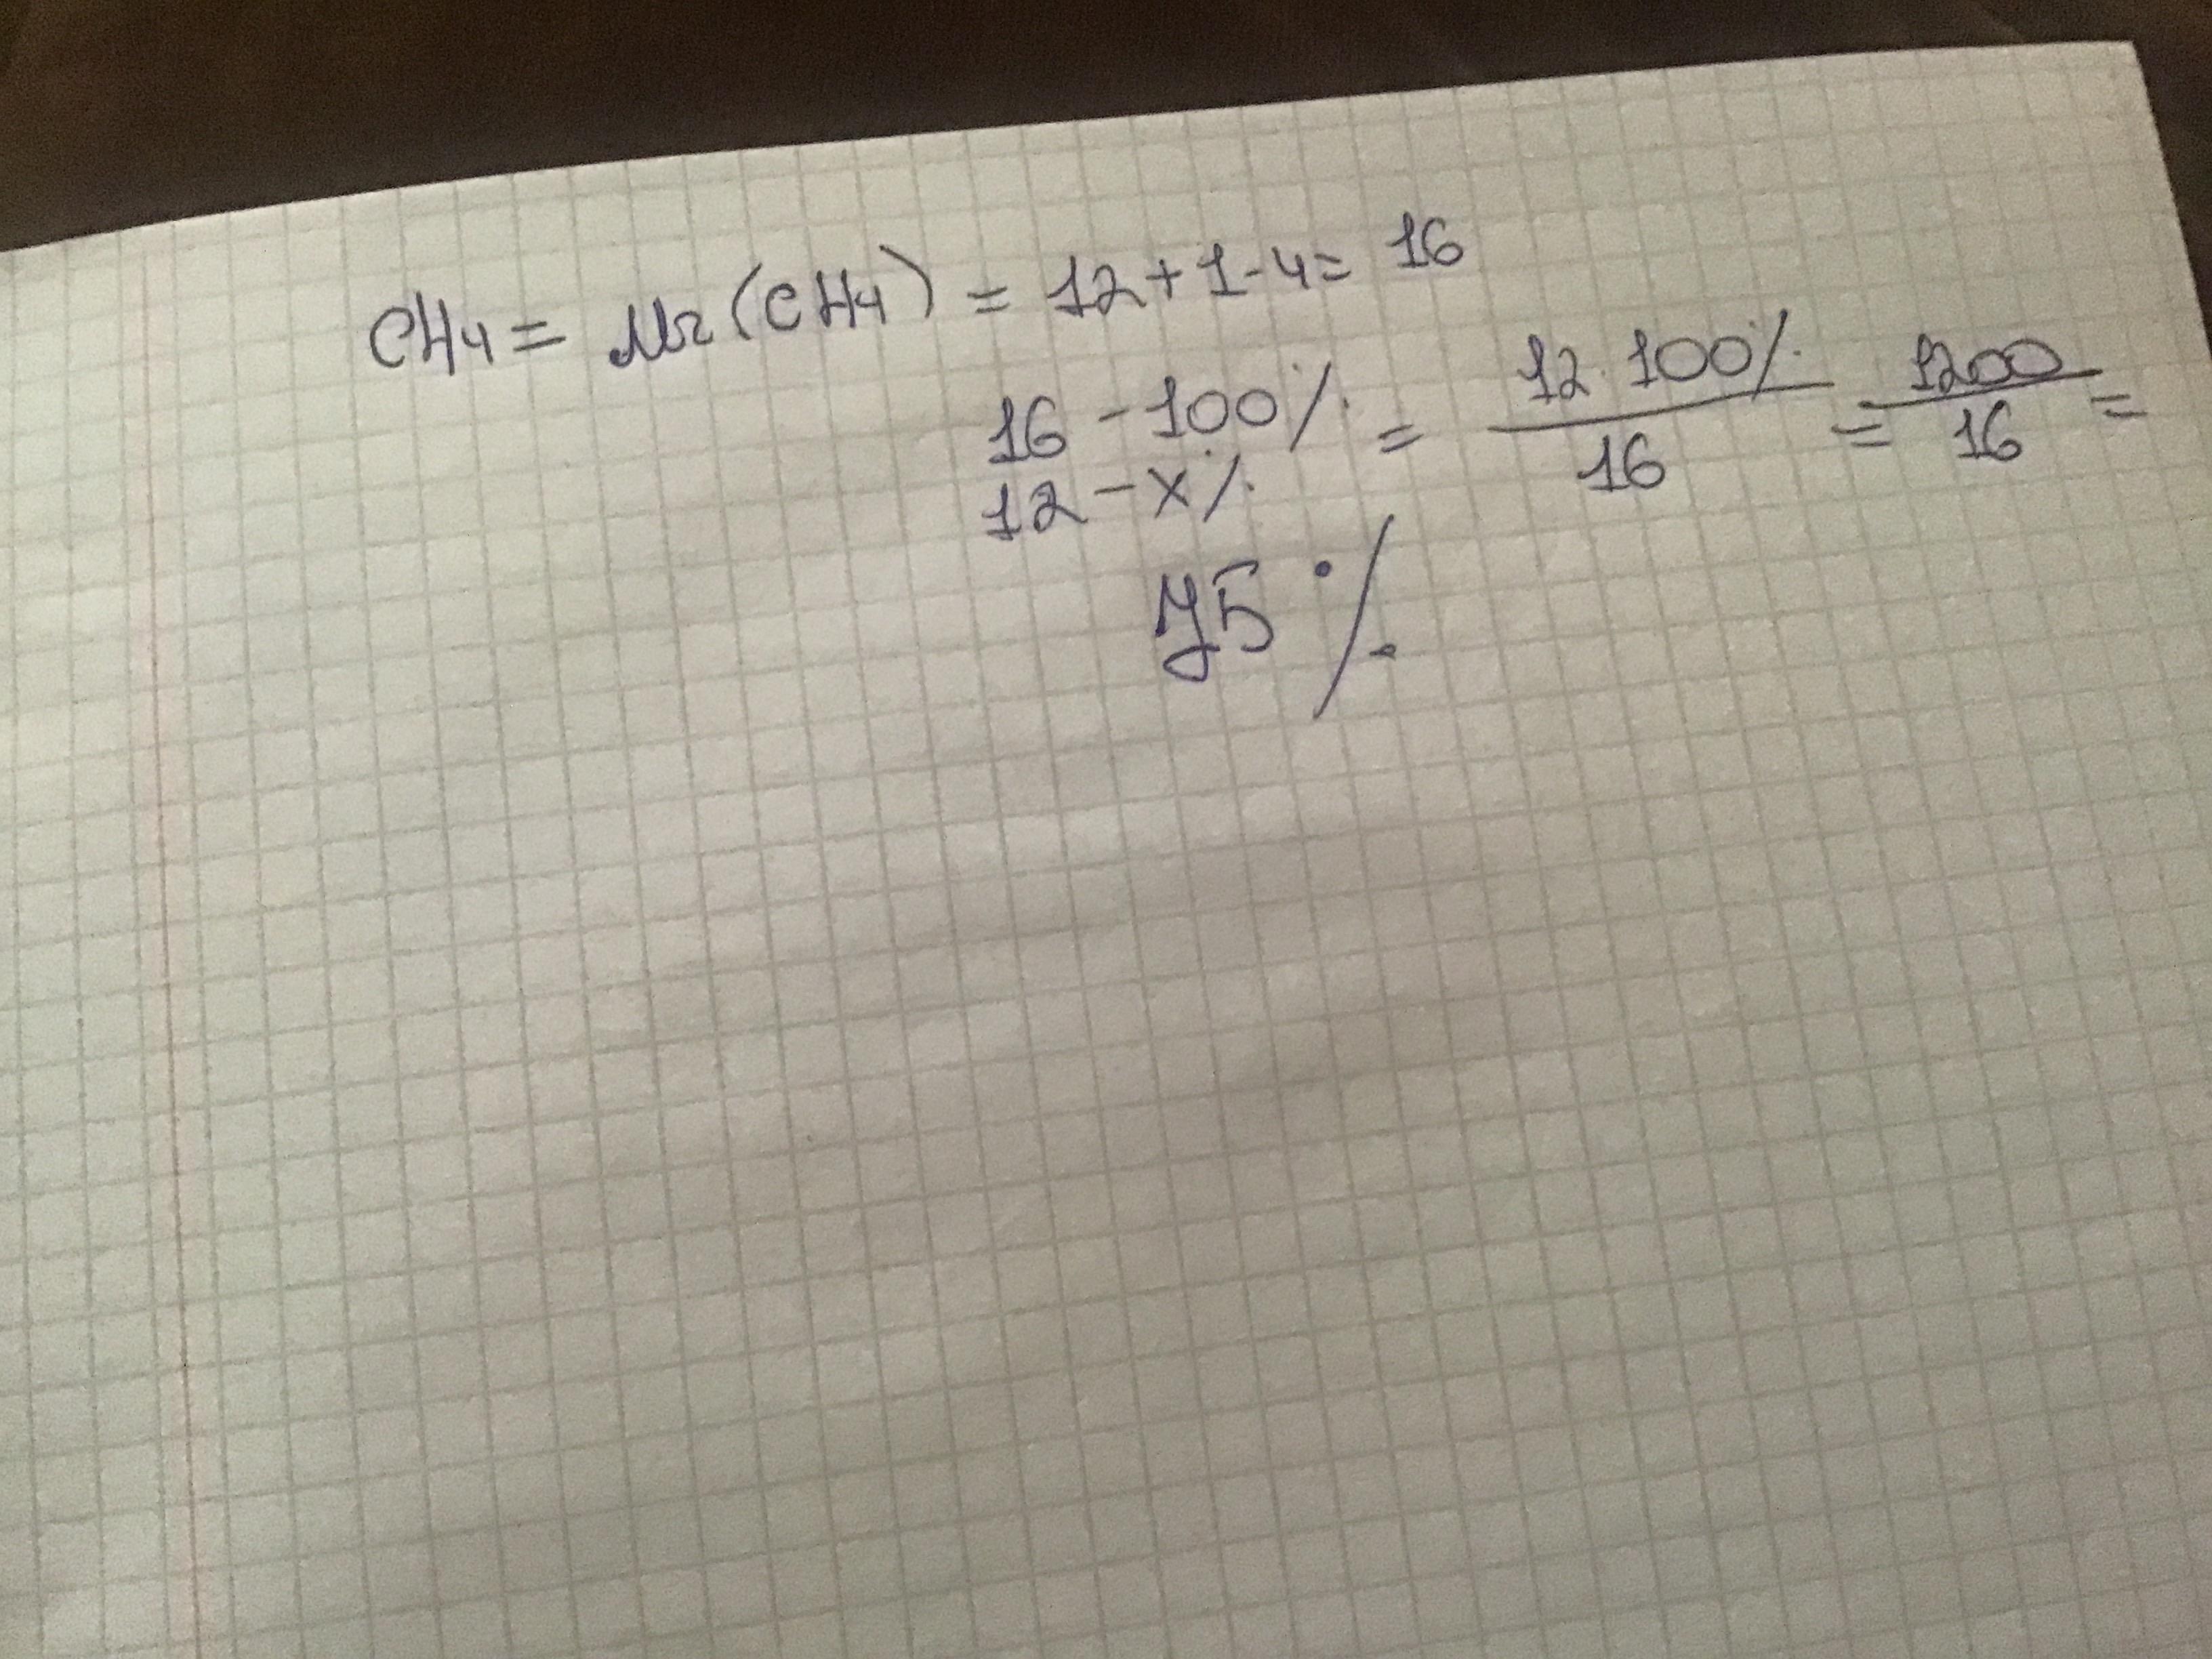 CH4 = Mr (CH4) = 12 + 1 - 4 = 16
16 - 100% = 12 · 100% / 16 = 1200 / 16 =
12 - x%
75%